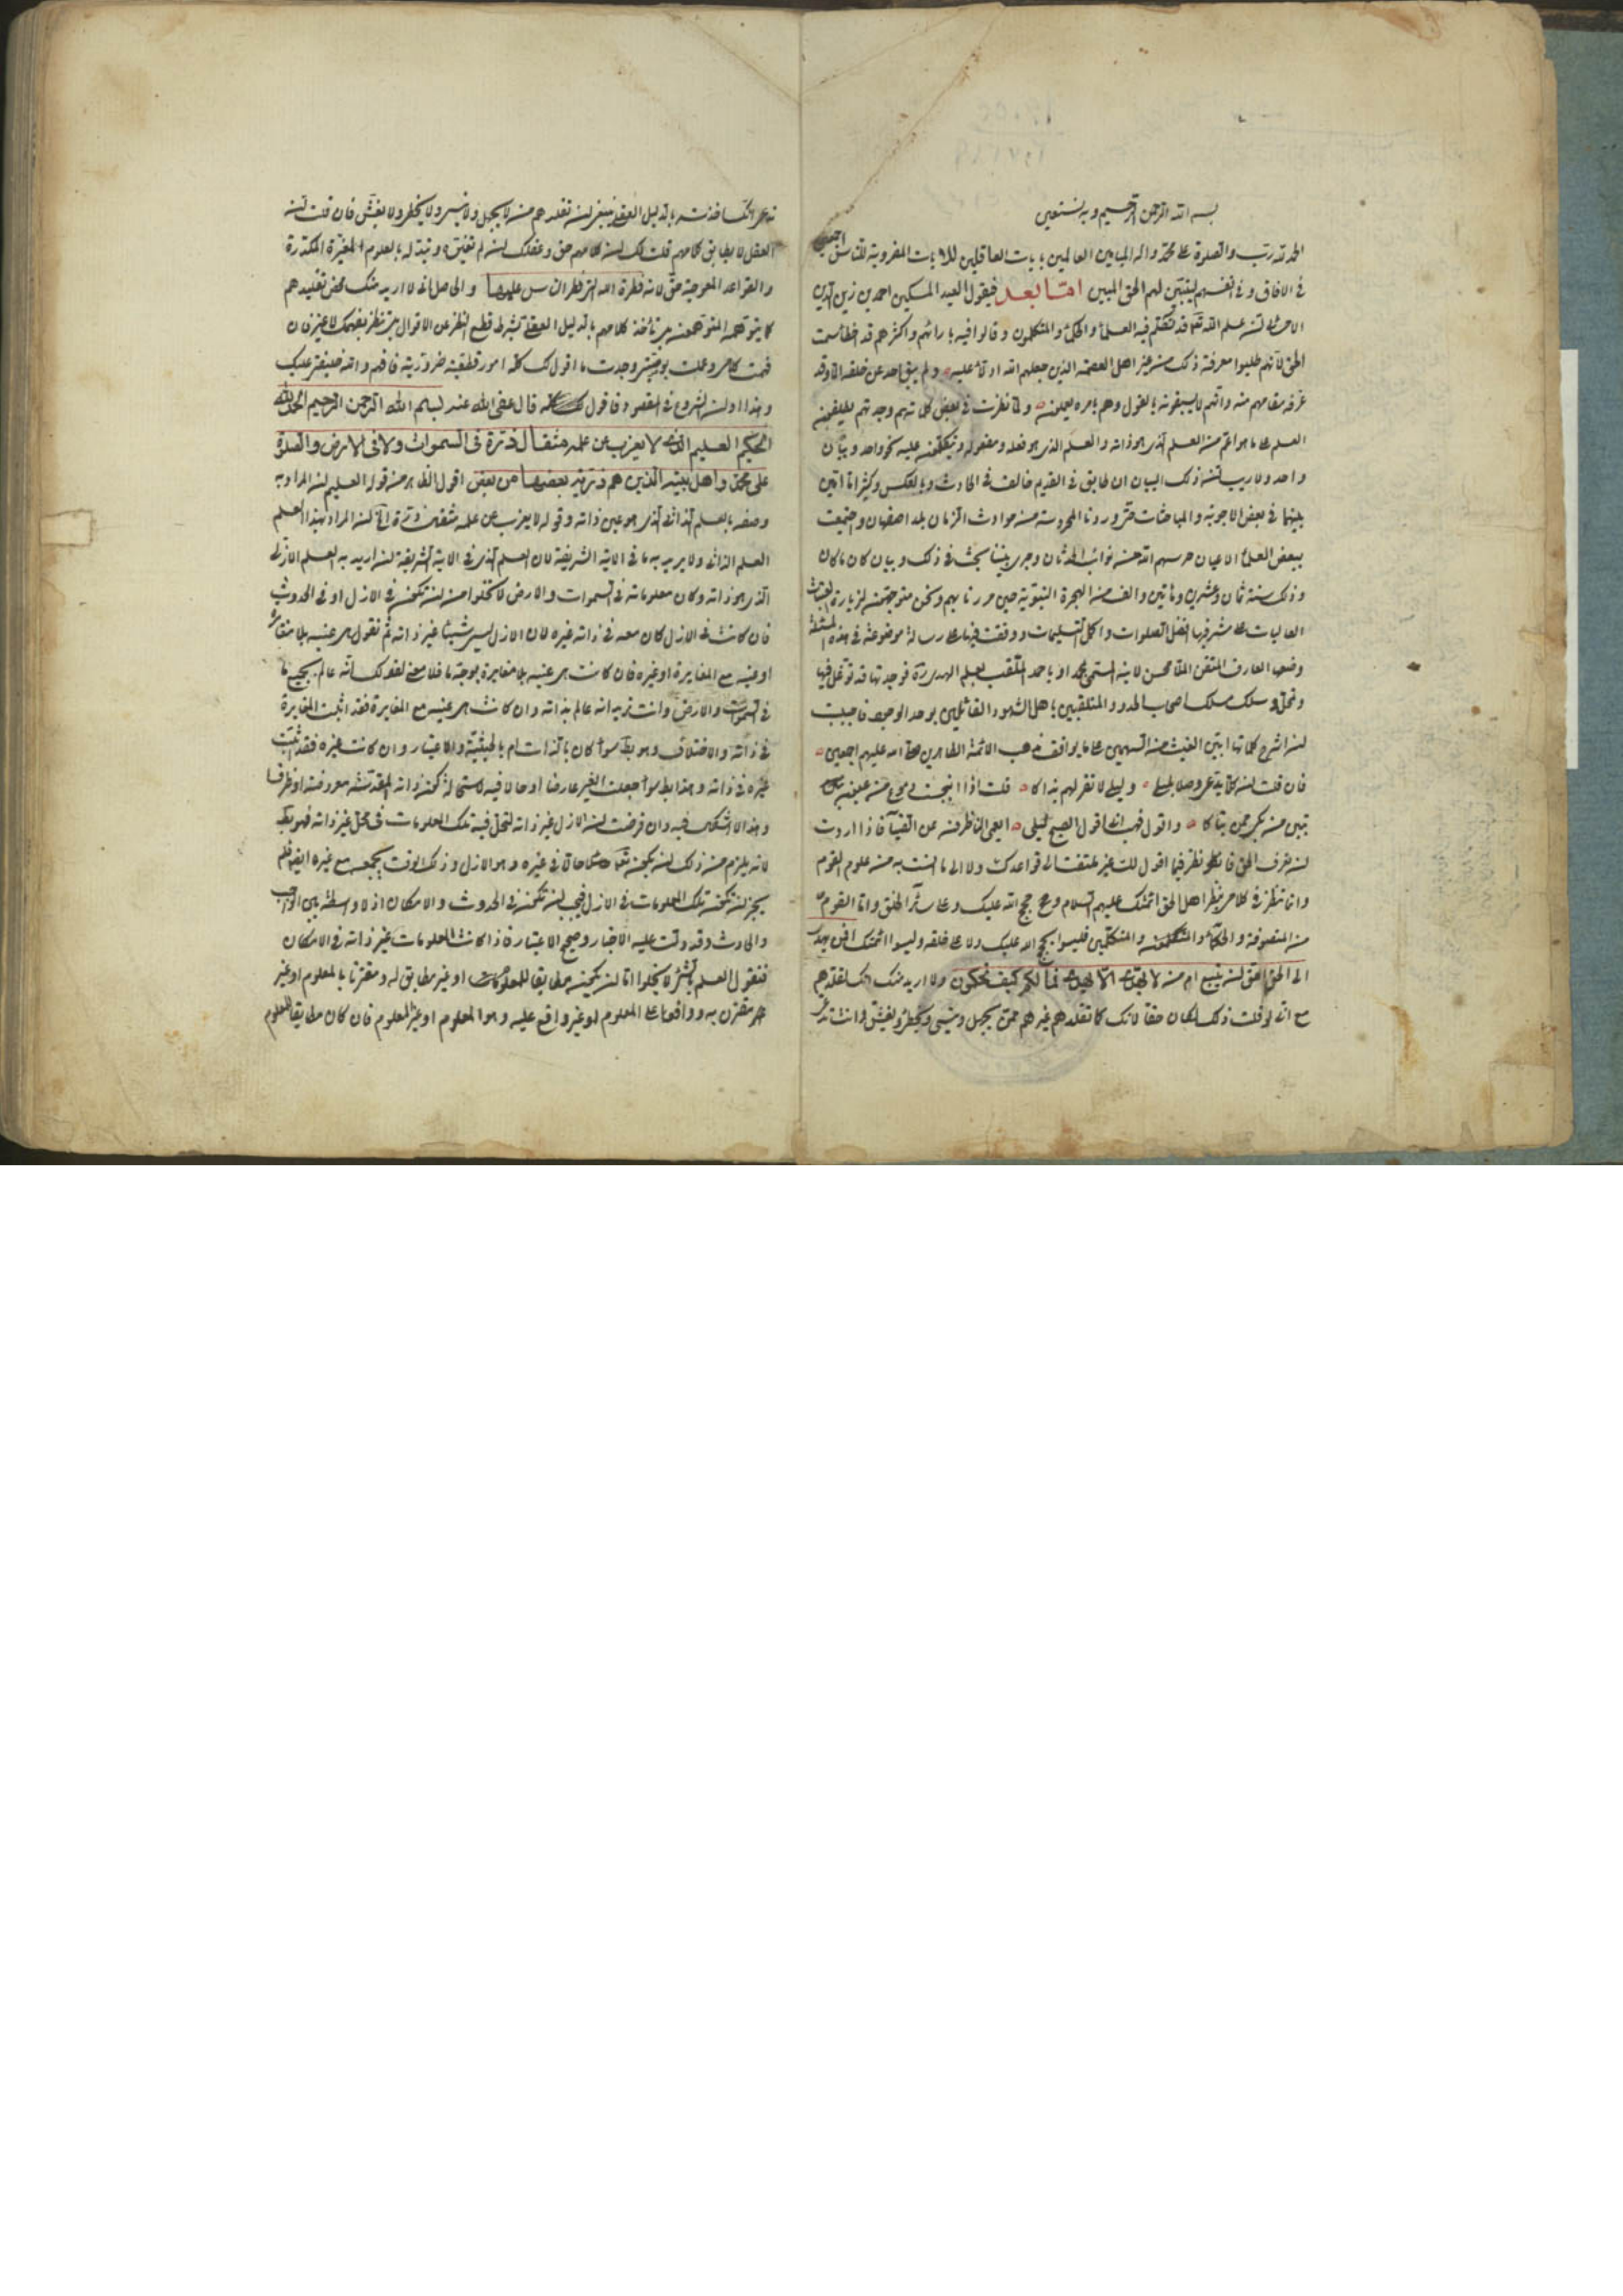 بسم الله الرحمن الرحيم وبه نستعين
الحمد لله رب والصلوة على محمد واله العالمين للايات المضروبة للناس اجمعين
في الافاق وفي انفسهم ليتبين لهم الحق المبين اما بعد فيقول العبد المسكين احمد بن زين الدين
الاحسائي ان علم الله قد تكلم فيه العلماء والحكماء والمتكلمون وقالوا فيه بارائهم واكثرهم قد اخطأ سمت
الحق لانهم طلبوا معرفة ذلك من غير اهل العصمة الذين جعلهم الله ادلاء عليه ولم يبق احد من خلقه الا وقد
عرفه مقامهم منه وانهم لا يسبقونه بالقول وهم بامره يعملون ولما نظرت في بعض كلماتهم وجدتهم يطلقون
العلم على ما هو اعم من العلم الذي هو ذاته والعلم الذي هو فعله ومفعوله ويتكلمون عليه بنحو واحد وبيان
واحد ولا ريب ان ذلك البيان ان طابق في القديم خالف في الحادث وبالعكس وكثيرا ما ابين
بينهما في بعض الاجوبة والمباحثات حتى وردنا المحروسة من حوادث الزمان بلد اصفهان واجتمعت
ببعض العلماء الاعيان حرسهم الله من نوائب الحدثان وجرى بيننا بحث في ذلك وبيان كان ما كان
وذلك سنة ثمان وعشرين ومأتين والف من الهجرة النبوية حين مررنا بهم ونحن متوجهون لزيارة العتبات
العاليات على مشرفيها افضل الصلوات واكمل التسليمات ووقفت فيها على رسالة موضوعة في هذه المسئلة
وضعها العارف المتقن الملا محسن لابنه المسمى بمحمد او باحمد الملقب بعلم الهدى فوجدتها قد توغل فيها
وسلك مسلك اصحاب القائلين بوحدة الوجود فاحببت
ان اشرح كلماتها ابين الغث من السمين على ما يوافق مذهب الائمة الطاهرين صلى الله عليهم اجمعين
فان قلت ان كلا يدعي وصلا بليلى وليلى لا تقر لهم بذاكا قلت اذا انبجست دموع من عيون
تبين من بكى ممن تباكا واقول فهب اني اقول الصبح ليلي ايعمى الناظرون عن الضياء فاذا اردت
ان تعرف الحق فانظر فيما اقول لك غير ملتفت الى قواعدك ولا الى ما انست به من علوم القوم
وانما تنظر في كلامي بنظر اهل الحق ائمتك عليهم السلام وهم حجج الله عليك وعلى سائر الخلق واما القوم
من المتصوفة والحكماء والمتكلمين فليسوا بحجج الله عليك ولا على خلقه وليسوا ائمتك افمن يهدي
الى الحق احق ان يتبع ام من لا يهدي الا ان يهدى فما لكم كيف تحكمون ولا اريد منك انك تقلدهم
مع اني لو قلت ذلك لكان حقا لانك كما تقلدهم غيرهم ممن يجهل وينسى ويخطئ ويغش وانت
بالدليل العقلي فينبغي ان تقلدهم من لا يجهل ولا ينسى ولا يخطئ ولا يغش فان قلت ان
العقل لا يطابق كلامهم قلت لك ان كلامهم حق وعقلك ان لم تغيره وتبدله بالعلوم المغيرة المكدرة
والقواعد المعوجة حق لانه فطرة الله التي فطر الناس عليها والحاصل اني لا اريد منك محض تقليدهم
كما يتوهمه المتوهمون بل تأخذ كلامهم بالدليل العقلي بشرط قطع النظر عن الاقوال بل تنظر بفهمك لا غير فان
فهمت كلامي وعملت بوصيتي وجدت ما اقول لك كله امورا قطعية ضرورية فافهم والله خليفتي عليك
وهذا اوان الشروع في المقصود فاقول قال عفى الله عنه بسم الله الرحمن الرحيم الحمد لله
الحكيم العليم الذي لا يعزب عن علمه مثقال ذرة في السموات ولا في الارض والصلوة
على محمد واهل بيته الذين هم ذرية بعضها من بعض اقول الظاهر من قوله العليم ان المراد به
وصفه بالعلم الذاتي الذي هو عين ذاته وقوله لا يعزب عن علمه مثقال ذرة ان المراد بهذا العلم
العلم الذاتي ولا يريد به ما في الاية الشريفة لان العلم الذي في الاية الشريفة ان اريد به العلم الازلي
الذي هو ذاته وكان معلوماته في السموات والارض لا تخلوا من ان تكون في الازل او في الحدوث
فان كانت في الازل كان معه في ذاته غيره لان الازل ليس شيئا غير ذاته ثم نقول هي عينه بلا مغايرة
او عينه مع المغايرة او غيره فان كانت هي عينه بلا مغايرة بوجه ما فلا معنى لقولك انه عالم بجميع ما
في السموات والارض وانت تريد انه عالم بذاته وان كانت هي عينه مع المغايرة فقد اثبت المغايرة
في ذاته والاختلاف وهو باطل سواء كان بالذات ام بالحيثية والاعتبار وان كانت غيره فقد اثبت
غيره في ذاته وهذا باطل سواء جعلت الغير عارضا او حالا فيه لاستحالة كون ذاته المقدسة معروضة او ظرفا
وهذا لا اشكال فيه وان فرضت ان الازل غير ذاته لتحل فيه تلك المعلومات في محل غير ذاته فهو باطل
لانه يلزم من ذلك ان يكون تعالى حالا في غيره وهو الازل وذلك الوقت يجمعه مع غيره ايضا فلم
يجز ان تكون تلك المعلومات في الازل فيجب ان تكون في الحدوث والامكان اذ لا واسطة بين الواجب
والحادث وقد دلت عليه الاخبار وصحيح الاعتبار فاذا كانت المعلومات غير ذاته في الامكان
فنقول العلم بالشئ لا يخلوا اما ان يكون مطابقا للمعلوم او غير مطابق له ومقترنا بالمعلوم او غير
مقترن به وواقعا على المعلوم او غير واقع عليه وهو المعلوم او غير المعلوم فان كان مطابقا للمعلوم